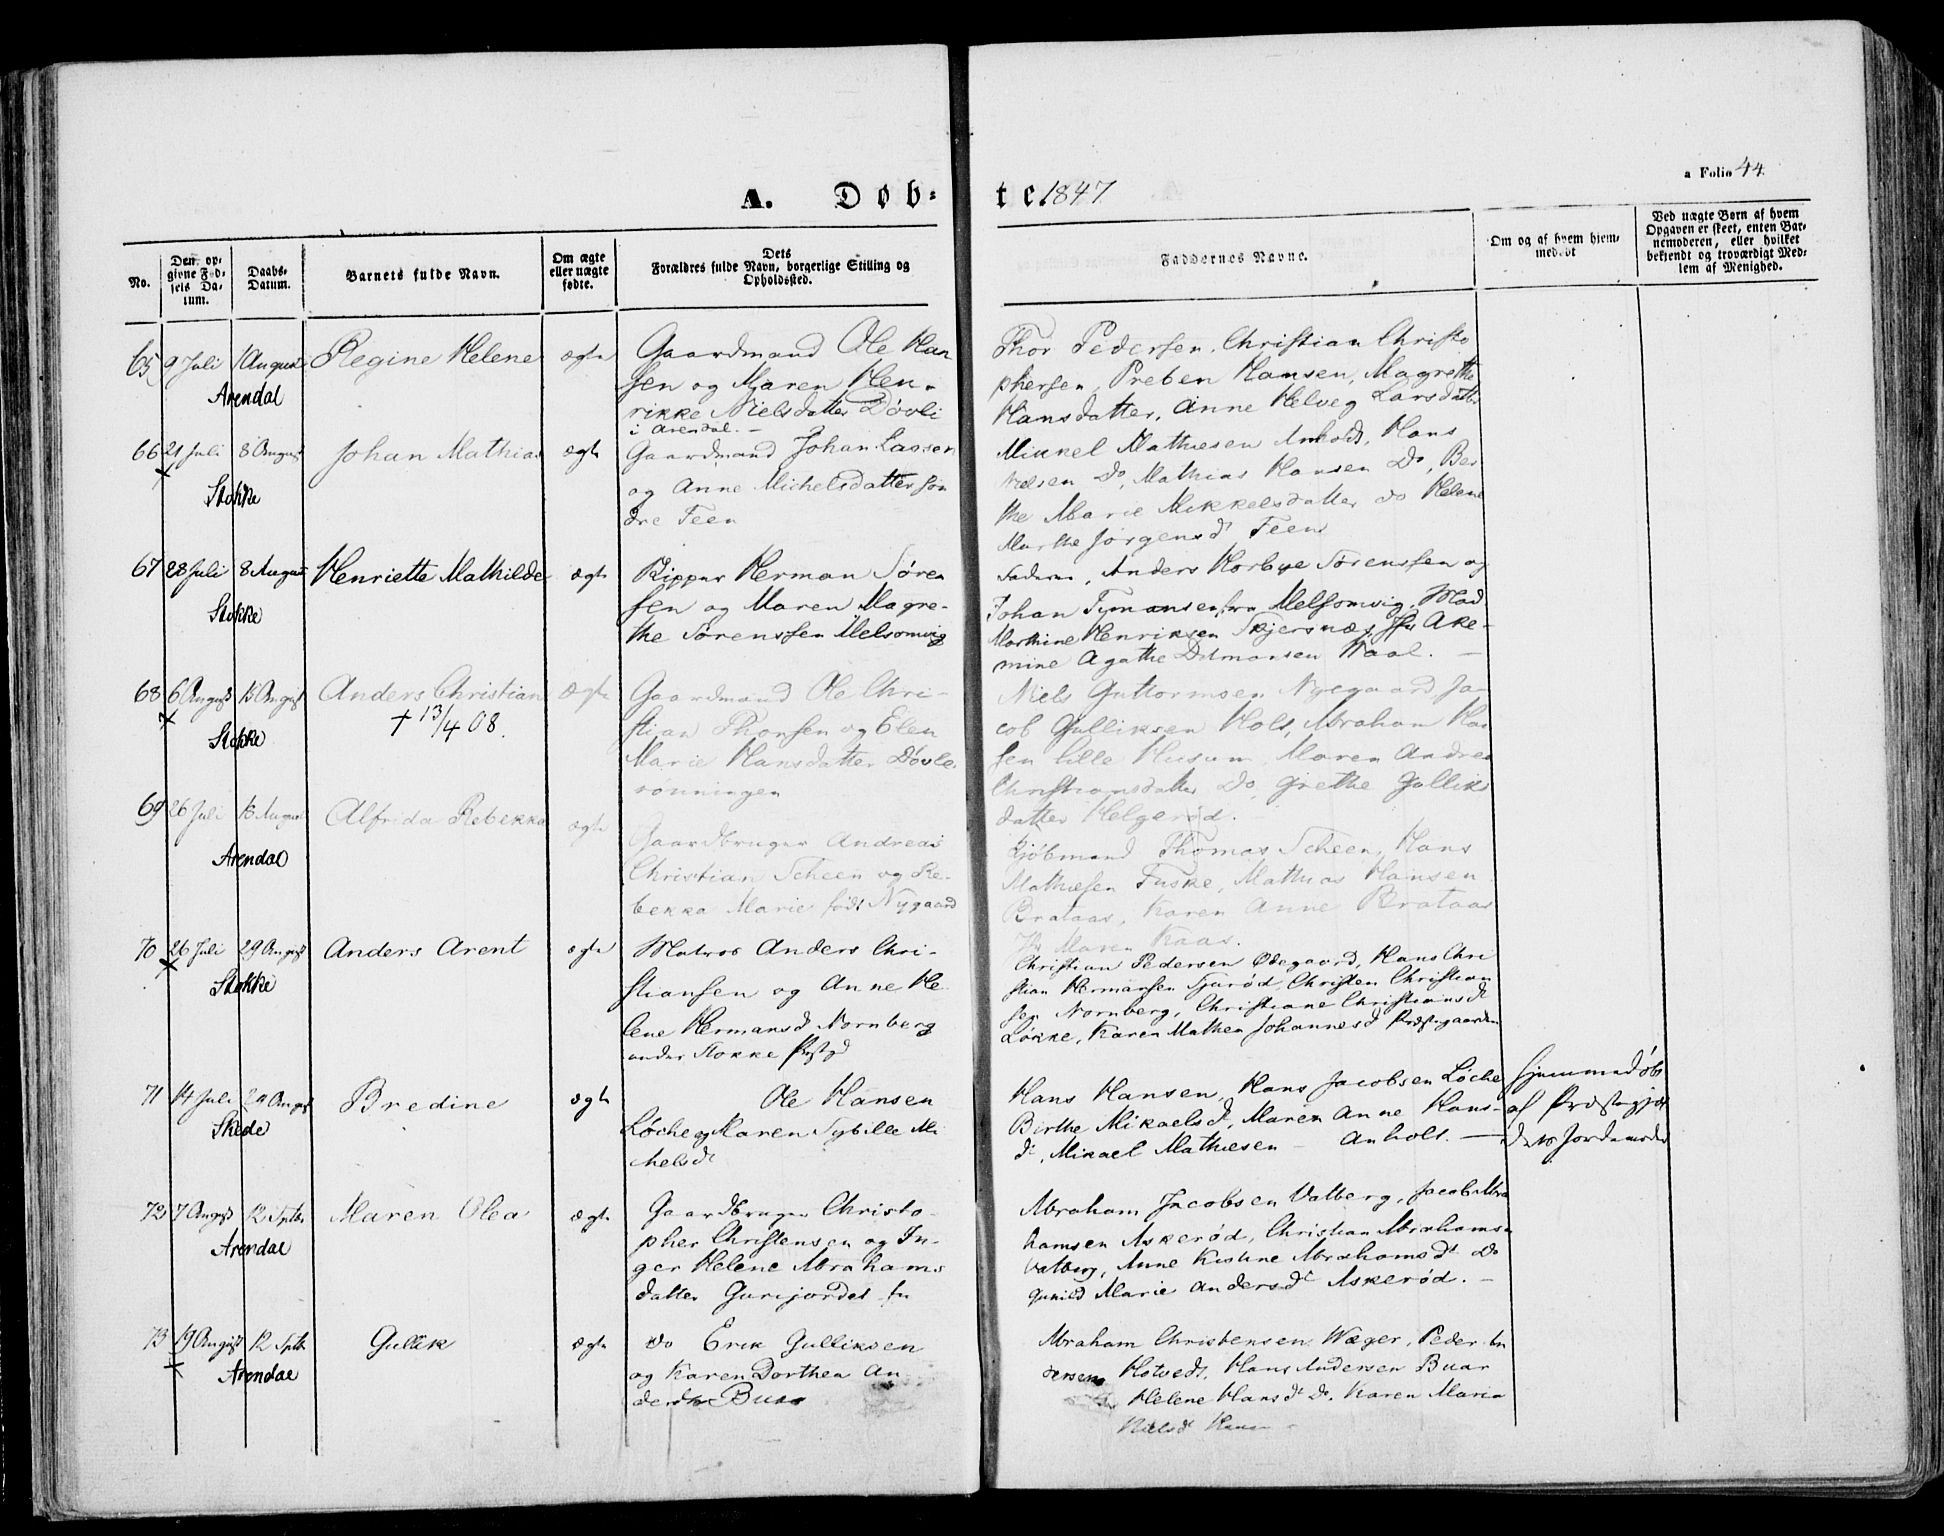 a Folio 44.
A. Døb-
te. 1847
No.
Den opgivne Fødsels Datum.
Daabs-Datum.
Barnets fulde Navn.
Om ægte eller uægte fødte.
Dets Forældres fulde Navn, borgerlige Stilling og Opholdssted.
Faddernes Navne.
Om og af hvem hjemmedøbt
Ved uægte Børn af hvem Opgaven er skeet, enten Barnemoderen, eller hvilket bekjendt og troværdigt Medlem af Menighed.
65 9 Juli 1 August Regine Helene ægte
Arendal
Gaardmand Ole Han
sen og Maren Hen-
rikke Nielsdatter Døvle
i Arendal. -
Thor Pedersen, Christian Christo
phersen, Preben Hansen, Magrethe
Hansdatter, Anne Helveg Larsdatter
66 21 Juli 8 August Johan Mathias ægte
Stokke
Gaardmand Johan Lassen
og Anne Michelsdatter søn
dre Feen
Mikkel Mathiesen Anholt, Hans
Nielsen Do, Mathias Hansen Do, Ber
the Marie Mikkelsdatter do Helene
Marthe Jørgensdt Feen
67 28 Juli 8 August Henriette Mathilde ægte
Stokke
Skipper Herman Søren
sen og Maren Magre-
the Sørenssen Melsomvig
Faderen, Anders Horbye Sørenssen og
Johan Tymansen fra Melsomvig, Mad
Marthine Henriksen Skjersnæs, Jfr Ake-
mine Agathe Ditmansen Waal. -
68 6 August 15 August Anders Christian ægte
† 13/4 08.
Stokke
Gaardmand Ole Chri-
stian Thorsen og Elen
Marie Hansdatter Døvle
rønningen
Niels Guttormsen Nyegaard Ja-
cob Gulliksen Hols, Abraham Han
sen lille Husum, Maren Andrea
Christiansdatter Do, Grethe Gulliks
datter Helgerød. -
69 26 Juli 15 August Alfrida Rebekka ægte
Arendal
Gaardbruger Andreas
Christian Scheen og Re-
bekka Marie født Nygaard
Kjøbmand Thomas Scheen, Hans
Mathiesen Fuske, Mathias Hansen
Brataas, Karen Anne Brataas
Jfr Maren Kaas.
70 26 Juli 29 August Anders Arent ægte
Stokke
Matros Anders Chri-
stiansen og Anne He
lene Hermansd Nornberg
under Stokke Prstgd
Christian Pedersen Ødegaard, Hans Chri
stian Hermansen Fjarød, Christen Christian
sen Nornberg, Christiane Christiansdt
Løkke, Karen Mathea Johannesd Præstegaarden
71 14 Juli 29 August Bredine ægte
Skede
Ole Hansen
Løche og Maren Sybille Mi
chelsdt
Hans Hansen, Hans Jacobsen Løche
Birthe Mikaelsdt, Maren Anne Hans-
dt, Mikael Mathiesen - Anholt. -
hjemmedøbt
af Præstegjæl
dets Jordemoder
72 7 August 12 Septbr Maren Olea ægte
Arendal
Gaardbruger Christo-
pher Christensen og In-
ger Helene Abrahams
datter Gurijordet
Abraham Jacobsen Valberg, Jacob Abra
hamsen Askerød, Christian Abrahamsen
Valberg, Anne Kirstine Abrahamsdt Do
Gunild Marie Andersdt Askerød. -
73 19 August 12 Septbr Gullik ægte
Arendal
do Erik Gulliksen
og Karen Dorthea An
dersdtr Buar
Abraham Christensen Wæger, Peder An
dersen Hotvedt, Hans Andersen Buar
Helene Hansdt Do, Karen Maria
Nielsdt